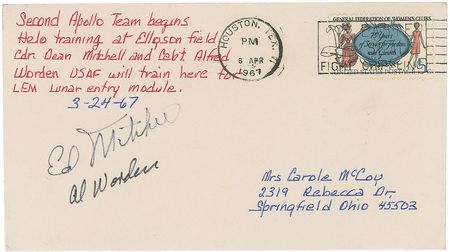 Second Apollo Team begins
Helo training at Ellgson field
Cdr. Dean Mitchell and Cabt. Alfred
Worden USAF will train here for
LEM Lunar entry module.
3-24-67
HOUSTON, TEX.
PM
6 APR
1967
GENERAL FEDERATION OF WOMEN'S CLUBS
75 Years
of Service for Freedom
and Growth
5¢
Ed Mitchell
Al Worden
Mrs Carole McCoy
2319 Rebecca Dr.
Springfield Ohio 45503